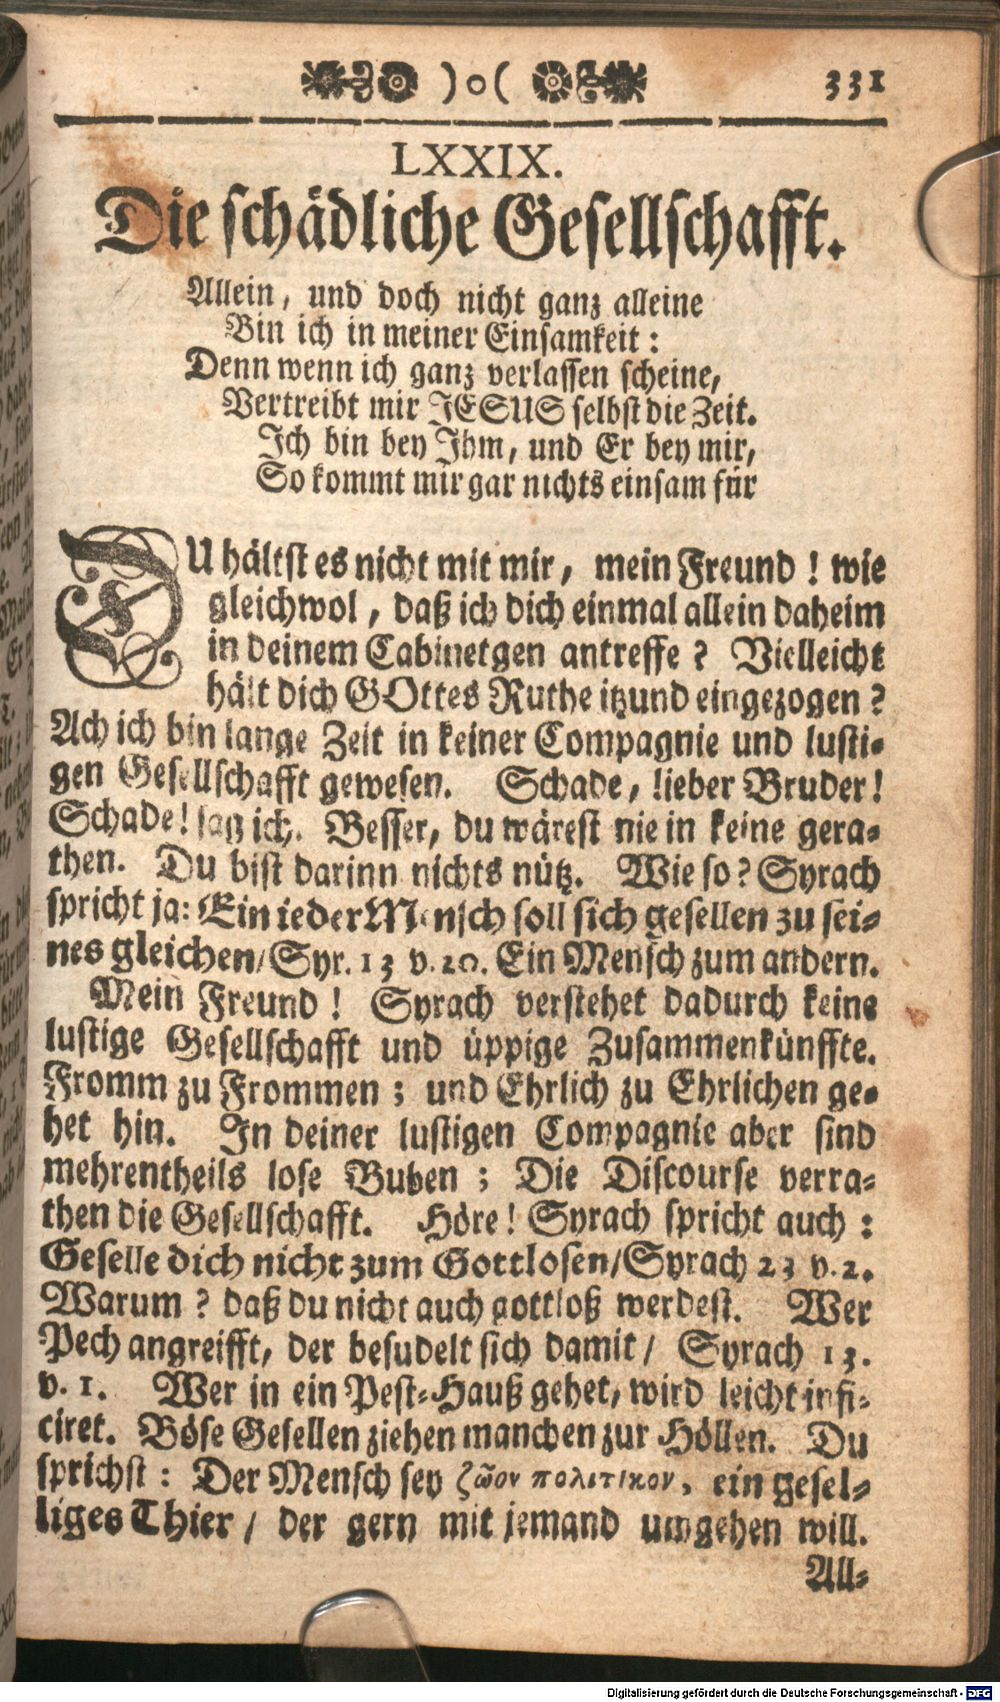 )o( 331
LXXIX.
Die schädliche Gesellschafft.
Allein, und doch nicht ganz alleine
Bin ich in meiner Einsamkeit:
Denn wenn ich ganz verlassen scheine,
Vertreibt mir JESUS selbst die Zeit.
Ich bin bey Ihm, und Er bey mir,
So kommt mir gar nichts einsam für
DU hältst es nicht mit mir, mein Freund! wie
gleichwol, daß ich dich einmal allein daheim
in deinem Cabinetgen antreffe? Vielleicht
hält dich GOttes Ruthe itzund eingezogen?
Ach ich bin lange Zeit in keiner Compagnie und lusti-
gen Gesellschafft gewesen. Schade, lieber Bruder!
Schade! sag ich. Besser, du wärest nie in keine gera-
then. Du bist darinn nichts nütz. Wie so? Syrach
spricht ja: Ein ieder Mensch soll sich gesellen zu sei-
nes gleichen/ Syr. 13 v. 20. Ein Mensch zum andern.
Mein Freund! Syrach verstehet dadurch keine
lustige Gesellschafft und üppige Zusammenkünffte.
Fromm zu Frommen; und Ehrlich zu Ehrlichen ge-
het hin. In deiner lustigen Compagnie aber sind
mehrentheils lose Buben; Die Discourse verra-
then die Gesellschafft. Höre! Syrach spricht auch:
Geselle dich nicht zum Gottlosen/ Syrach 23 v. 2.
Warum? daß du nicht auch gottloß werdest. Wer
Pech angreifft, der besudelt sich damit/ Syrach 13.
v. 1. Wer in ein Pest-Hauß gehet, wird leicht infi-
ciret. Böse Gesellen ziehen manchen zur Höllen. Du
sprichst: Der Mensch sey ζῶον πολιτικον, ein gesel-
liges Thier/ der gern mit jemand umgehen will.
All-
Digitalisierung gefördert durch die Deutsche Forschungsgemeinschaft - DFG